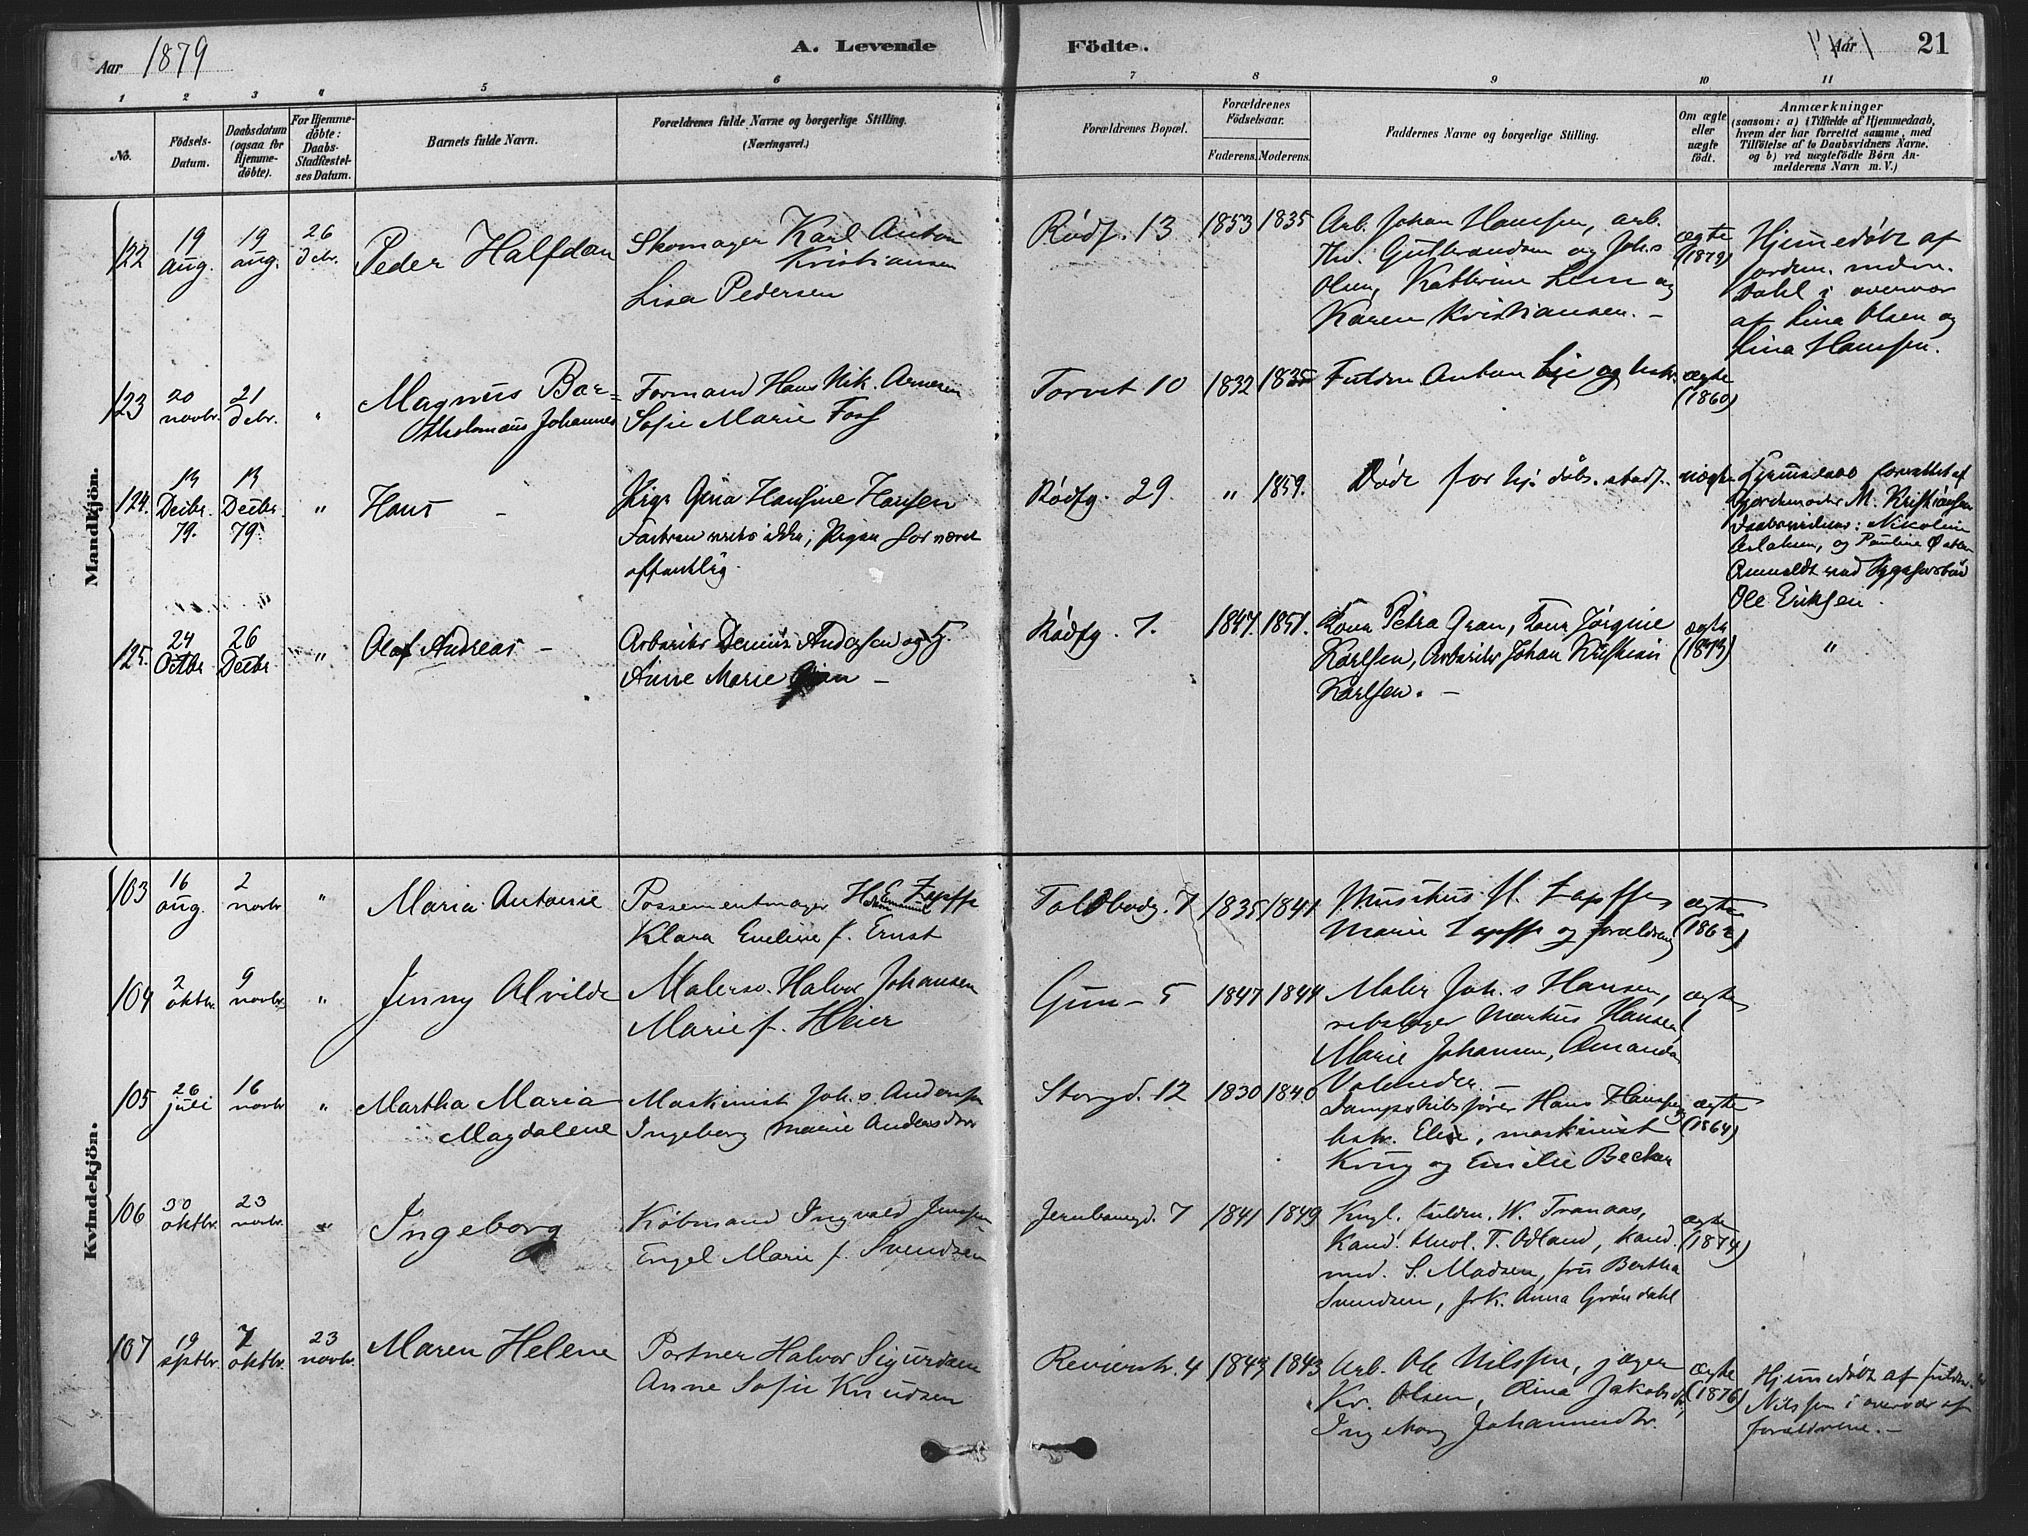 Aar 1879
A. Levende Födte.
Aar
21
1 2 3 4 5 6 7 8 9 10 11
No.
Födsels-
Datum.
Daabsdatum
(ogsaa for
Hjemme-
döbte).
For Hjemme-
döbte:
Daabs-
Stadfæstel-
ses Datum.
Barnets fulde Navn.
Forældrenes fulde Navne og borgerlige Stilling.
(Næringsvei.)
Forældrenes Bopæl.
Forældrenes
Födselsaar.
Faderens.
Moderens.
Faddernes Navne og borgerlige Stilling.
Om ægte
eller
uægte
födt.
Anmærkninger
(saasom: a) i Tilfælde af Hjemmedaab,
hvem der har forrettet samme, med
Tilföielse af to Daabsvidners Navne.
og b) ved uægtefödte Börn An-
melderens Navn m. V.)
Mandkjön.
122 19 Aug. 19 aug. 26 dcbr. Peder Halfdan
Skomager Karl Anton
Kristiansen
Lisa Pedersen
Rødf. 13 1853 1835
Arb. Johan Hanssen, arb.
Th. Gulbrandsen og Joh.s
Olsen, Kathrine Lem og
Karen Kristiansen. –
ægte
(1879)
Hjemmedøbt af
jordm. madm.
Dahl i overvær
af Lina Olsen og
Lina Hanssen.
123 20 novbr. 21 dcbr. "
Magnus Bar=
tholomæus Johannes
Formand Hans Nik. Arnesen
Sofie Marie Foss
Torvet 10 1832 1835
Fuldm. Anton Lie og hstr.
ægte
(1860)
124. 13 Decbr. 79. 13 Decbr. 79. " Hans –
Pige Gina Hansine Hansen
offentlig.
Rødfg. 29. " 1859.
Døde før hj. dåbs. stadf.
uægte
Hjemmedaab forrettet af
Gjordemoder M. Kristiansen
Daabsvidner: Nikoline
Aslaksen, og Pauline
Anmeldt ved
Ole Eriksen.
125. 24 Octbr 26 Decbr " Olaf Andreas –
Arbeider Andersen og
Anne Marie Gran –
Rødfg. 7. 1847. 1851.
Kone Petra Gran, Kone Jørgine
Karlsen, Arbeider Johan Kristian
Karlsen. –
ægte
(1873)
"
Kvindekjön.
103 16 aug. 2 novbr " Maria Antonie
Possementmager H. Emanuel Zapffe
Klara Eveline f. Ernst
Toldbodg. 7 1835 1841
Musikus H. Zapffe,
Marie Zapffe og forældrene
ægte
(1862)
104 2 oktbr. 9 novbr. " Jenny Alvilde
Malersv. Halvor Johansen
Marie f. Heier
Grøn – 5 1847 1844
Maler Joh.s Hansen,
rebslager Markus Hansen,
Marie Johansen, Amanda
ægte
105 26 juli 16 novbr "
Martha Maria
Magdalene
Maskinist Joh.s Andersen
Ingeborg Marie Andersdtr
Storgd. 12 1830 1840
Dampskibsfører Hans Hanssen,
hstr. Elise, maskinist
Krug og Emilie Becker
ægte
(1864)
106 30 oktbr. 23 novbr. " Ingeborg
Købmand Ingvald Jenssen
Engel Marie f. Svendsen
Jernbanegd. 7 1841 1849
Kngl. fuldm. W. Tranaas,
Kand. theol. T. Odland, kand.
med. S. Madsen, fru Bertha
Svendsen, frk. Anna Grøndahl
ægte
(1874)
107 19 septbr. 7 oktbr. 23 novbr. Maren Helene
Portner Halvor Sigurdsen
Anne Sofie Knudsen
Revierstr. 4 1843 1843
Arb. Ole Nilssen, jæger
Kr. Olsen, Rina Jakobsdtr,
Ingeborg Johannesdtr.
ægte
(1876)
Hjemmedøbt af
Nilssen i overvær af
forældrene. –